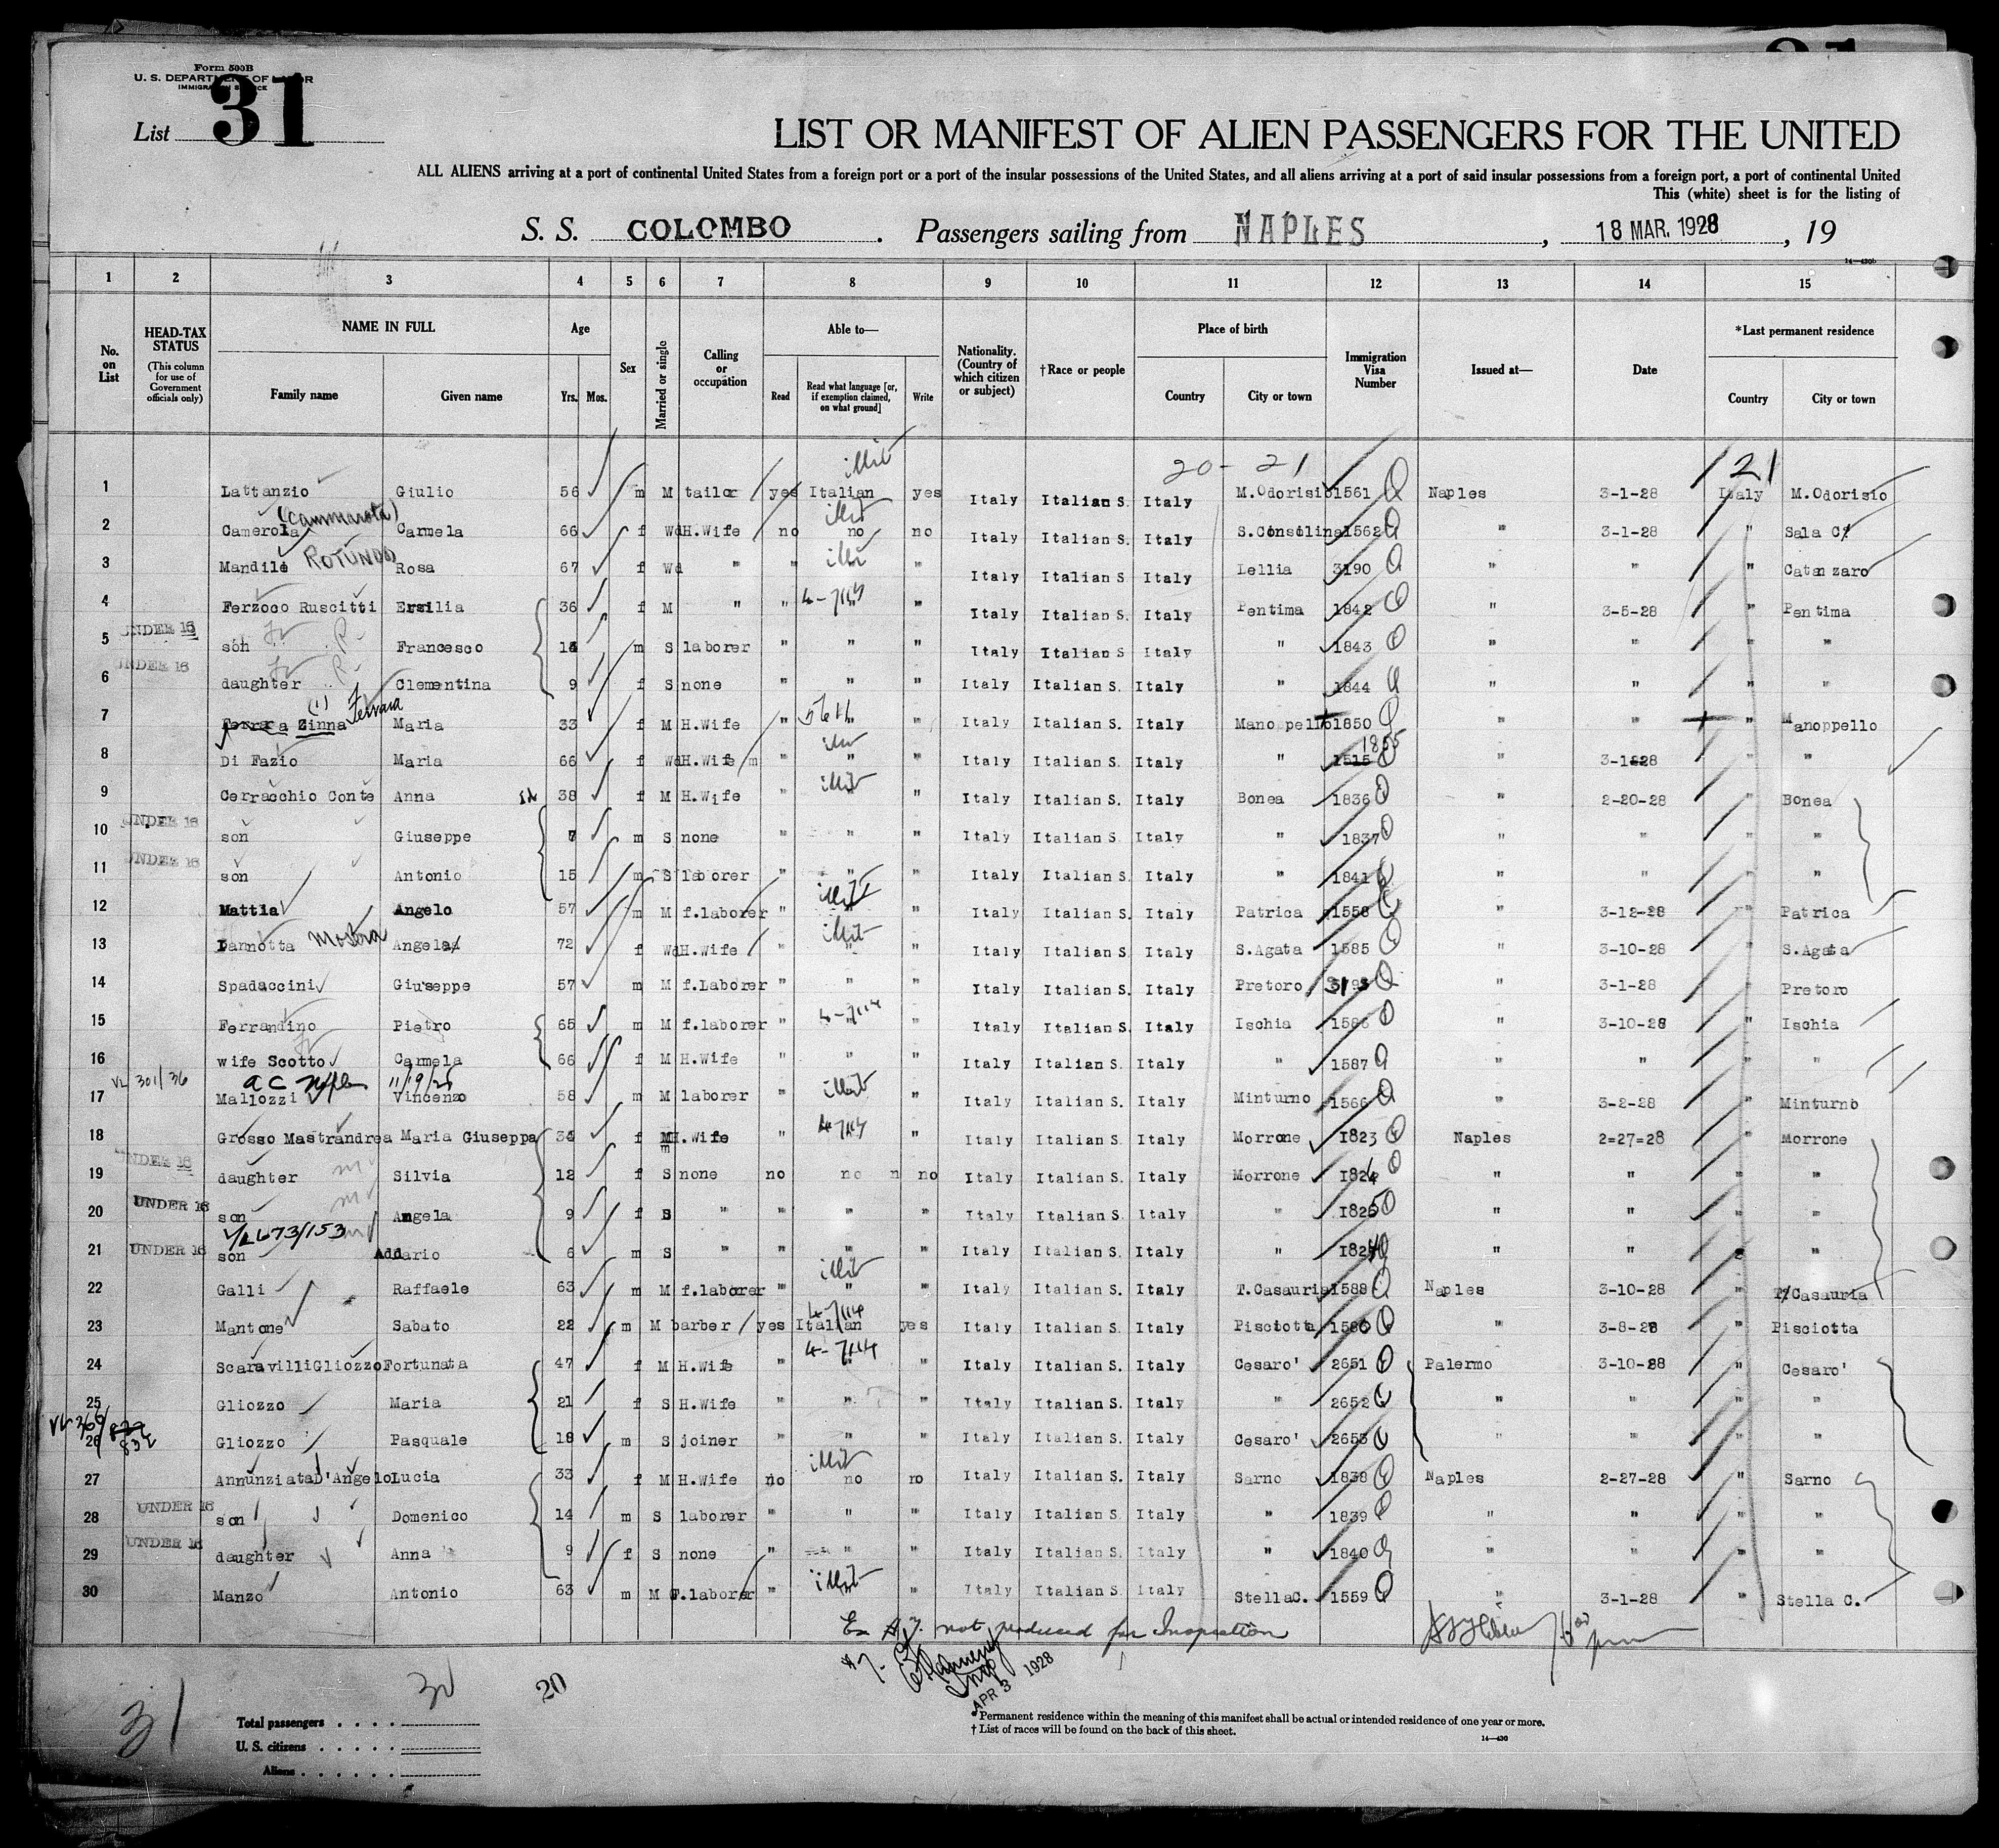 Form 500B
U. S. DEPARTMENT OF LABOR
IMMIGRATION SERVICE
List 31
LIST OR MANIFEST OF ALIEN PASSENGERS FOR THE UNITED
ALL ALIENS arriving at a port of continental United States from a foreign port or a port of the insular possessions of the United States, and all aliens arriving at a port of said insular possessions from a foreign port, a port of continental United
This (white) sheet is for the listing of
S. S. COLOMBO. Passengers sailing from NAPLES, 18 MAR. 1928, 19
14—430b
1 2 3 4 5 6 7 8 9 10 11 12 13 14 15
No. on List
HEAD-TAX STATUS (This column for use of Government officials only)
NAME IN FULL Family name Given name
Age Yrs. Mos.
Sex
Married or single
Calling or occupation
Able to— Read Read what language [or, if exemption claimed, on what ground] Write
Nationality. (Country of which citizen or subject)
†Race or people
Place of birth Country City or town
Immigration Visa Number
Issued at—
Date
*Last permanent residence Country City or town
20-21 21
1 Lattanzio Giulio 56 m M tailor yes Italian illit yes Italy Italian S. Italy M.Odorisio 1561 Naples 3-1-28 Italy M.Odorisio
2 Camerola (Cammarota) Carmela 66 f Wd H.Wife no no illit no Italy Italian S. Italy S.Consilina 1562 " 3-1-28 " Sala C.
3 Mandile ROTUNDO Rosa 67 f Wd " " illi " Italy Italian S. Italy Lellia 3190 " " " Catanzaro
4 Ferzoco Ruscitti Ersilia 36 f M " " " " Italy Italian S. Italy Pentima 1842 " 3-5-28 " Pentima
5 UNDER 16 son Francesco 14 m S laborer " " " Italy Italian S Italy " 1843 " " " "
6 UNDER 16 daughter Clementina 9 f S none " " " Italy Italian S. Italy " 1844 " " " "
7 Ferrara Zinna Ferrara Maria 33 f M H.Wife " 5611 " " Italy Italian S. Italy Manoppello 1850 " " " Manoppello
8 Di Fazio Maria 66 f Wd H.Wife m " " " Italy Italian S. Italy " 1515 1855 " " "
9 Cerracchio Conte Anna 38 f M H.Wife " illit " " Italy Italian S. Italy Bonea 1836 " 2-20-28 " Bonea
10 UNDER 16 son Giuseppe 7 m S none " " " Italy Italian S. Italy " 1837 " " " "
11 UNDER 16 son Antonio 15 m S laborer " " " Italy Italian S. Italy " 1841 " " " "
12 Mattia Angelo 57 m M f.laborer " illit " Italy Italian S. Italy Patrica 1558 " 3-12-28 " Patrica
13 Iannotta Angela 72 f Wd H.Wife " illit " " Italy Italian S. Italy S.Agata 1585 " 3-10-28 " S.Agata
14 Spadaccini Giuseppe 57 m M f.Laborer " " " Italy Italian S. Italy Pretoro " 3-1-28 " Pretoro
15 Ferrandino Pietro 65 m M f.laborer " " " Italy Italian S. Italy Ischia 1586 " 3-10-28 " Ischia
16 wife Scotto Carmela 66 f M H.Wife " " " Italy Italian S. Italy " 1587 " " " "
VL 301/36 11/9/28
17 Mallozzi Vincenzo 58 m M laborer illit " Italy Italian S. Italy Minturno 1566 " 3-2-28 " Minturno
18 Grosso Mastrandrea Maria Giuseppa 34 f M H.Wife " " Italy Italian S. Italy Morrone 1823 Naples 2=27=28 " Morrone
19 UNDER 16 daughter Silvia 12 f S none no no no Italy Italian S. Italy Morrone 1824 " " " "
20 UNDER 16 son Angela 9 f S " " " " Italy Italian S. Italy " 1825 " " " "
673/153
21 UNDER 16 son Addario 6 m S " " " " Italy Italian S. Italy " " " "
22 Galli Raffaele 63 m M f.laborer " illit " " Italy Italian S. Italy T.Casauria 1588 Naples 3-10-28 " T.Casauria
23 Mantone Sabato 22 m M barber yes Italian yes Italy Italian S. Italy Pisciotta 1580 " 3-8-28 Pisciotta
24 Scaravilli Gliozzo Fortunata 47 f M H.Wife " " " Italy Italian S. Italy Cesaro' 2651 Palermo 3-10-28 " Cesaro'
25 Gliozzo Maria 21 f S H.Wife " " " Italy Italian S. Italy " 2652 " " " "
26 Gliozzo Pasquale 18 m S joiner " " " Italy Italian S. Italy Cesaro' 2653 " " " "
27 Annunziata D'Angelo Lucia 33 f M H.Wife no no illit no Italy Italian S. Italy Sarno 1838 Naples 2-27-28 " Sarno
28 UNDER 16 son Domenico 14 m S laborer " " " Italy Italian S. Italy " 1839 " " " "
29 UNDER 16 daughter Anna 9 f S none " " " Italy Italian S. Italy " 1840 " " " "
30 Manzo Antonio 63 m M f.laborer " illit " Italy Italian S. Italy StellaC. 1559 " 3-1-28 " Stella C.
Ex #7. not produced for Inspection
#7.
APR 3 1928
31
30
20
Total passengers
U. S. citizens
Aliens
* Permanent residence within the meaning of this manifest shall be actual or intended residence of one year or more.
† List of races will be found on the back of this sheet.
14—430